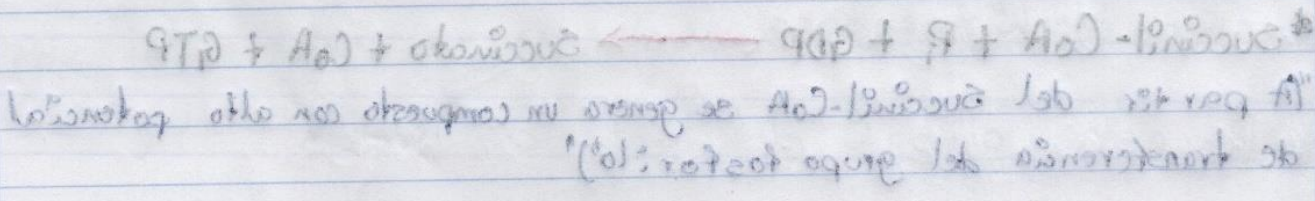 * Succinil-CoA + Pi + GDP → Succinato + CoA + GTP
"A partir del Succinil-CoA se genera un compuesto con alto potencial
de transferencia del grupo fosforilo)"